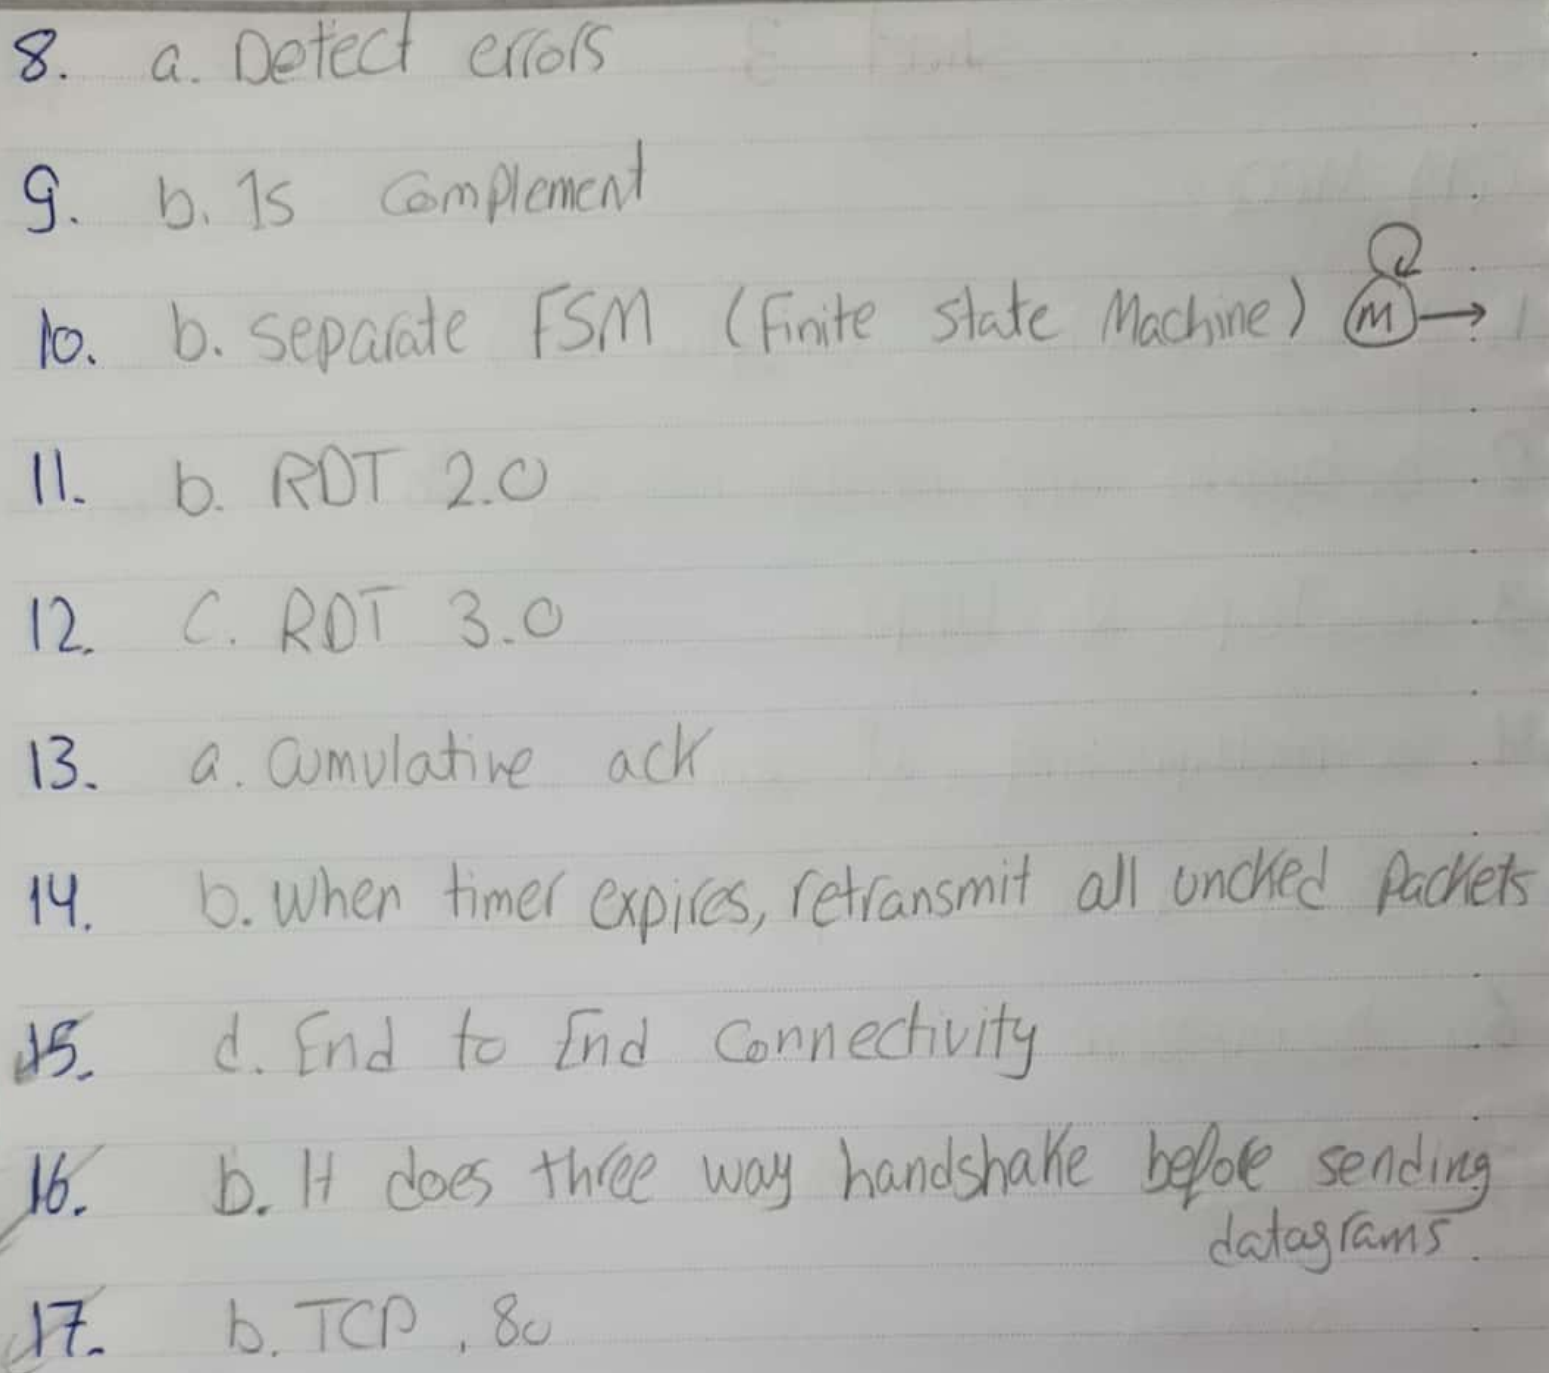 8. a. Detect errors
9. b. 1s complement
10. b. separate FSM (Finite state Machine) M →
11. b. RDT 2.0
12. C. RDT 3.0
13. a. Cumulative ack
14. b. When timer expires, retransmit all uncked Packets
15. d. End to End Connectivity
16. b. It does three way handshake before sending
datagrams
17. b. TCP, 80